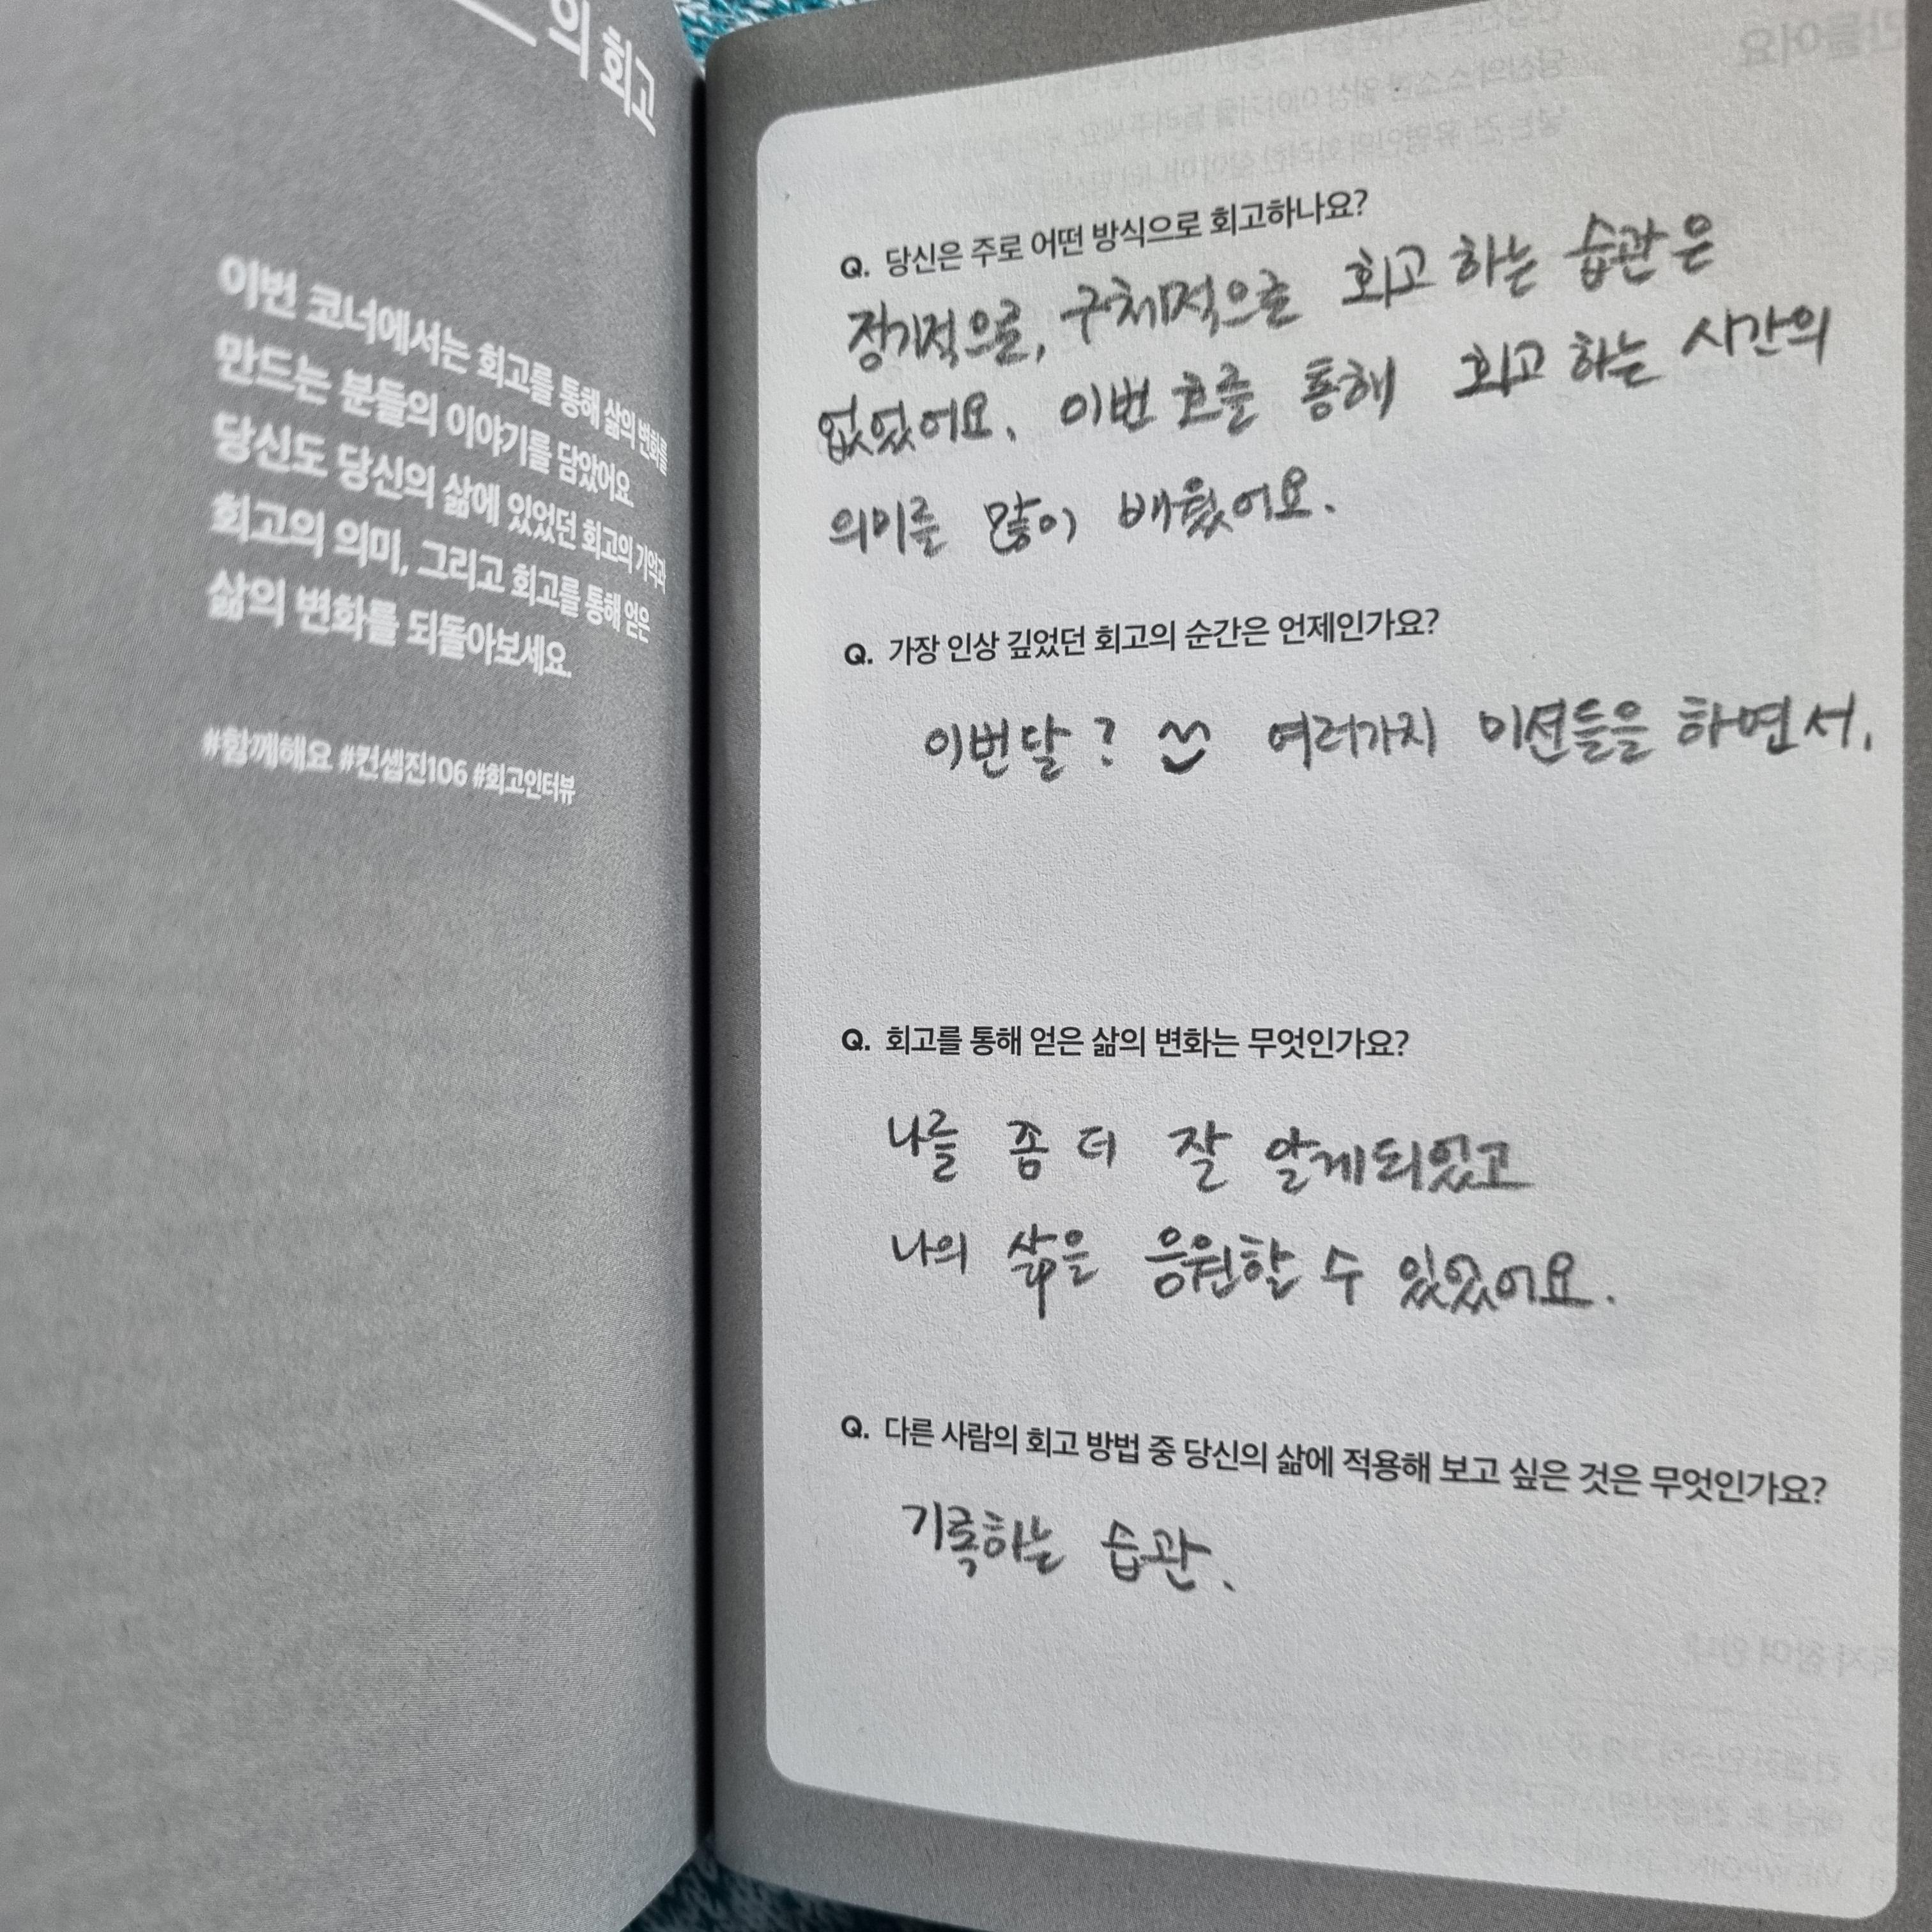 의 회고
이번 코너에서는 회고를 통해 삶의 변화를
만드는 분들의 이야기를 담았어요.
당신도 당신의 삶에 있었던 회고의 기억과
회고의 의미, 그리고 회고를 통해 얻은
삶의 변화를 되돌아보세요.
#함께해요 #컨셉진106 #회고인터뷰
Q. 당신은 주로 어떤 방식으로 회고하나요?
정기적으로, 구체적으로 회고 하는 습관은
없었어요. 이번 호를 통해 회고 하는 시간의
의미를 많이 배웠어요.
Q. 가장 인상 깊었던 회고의 순간은 언제인가요?
이번달? 여러가지 미션들을 하면서.
Q. 회고를 통해 얻은 삶의 변화는 무엇인가요?
나를 좀 더 잘 알게되었고
나의 삶을 응원할 수 있었어요.
Q. 다른 사람의 회고 방법 중 당신의 삶에 적용해 보고 싶은 것은 무엇인가요?
기록하는 습관.